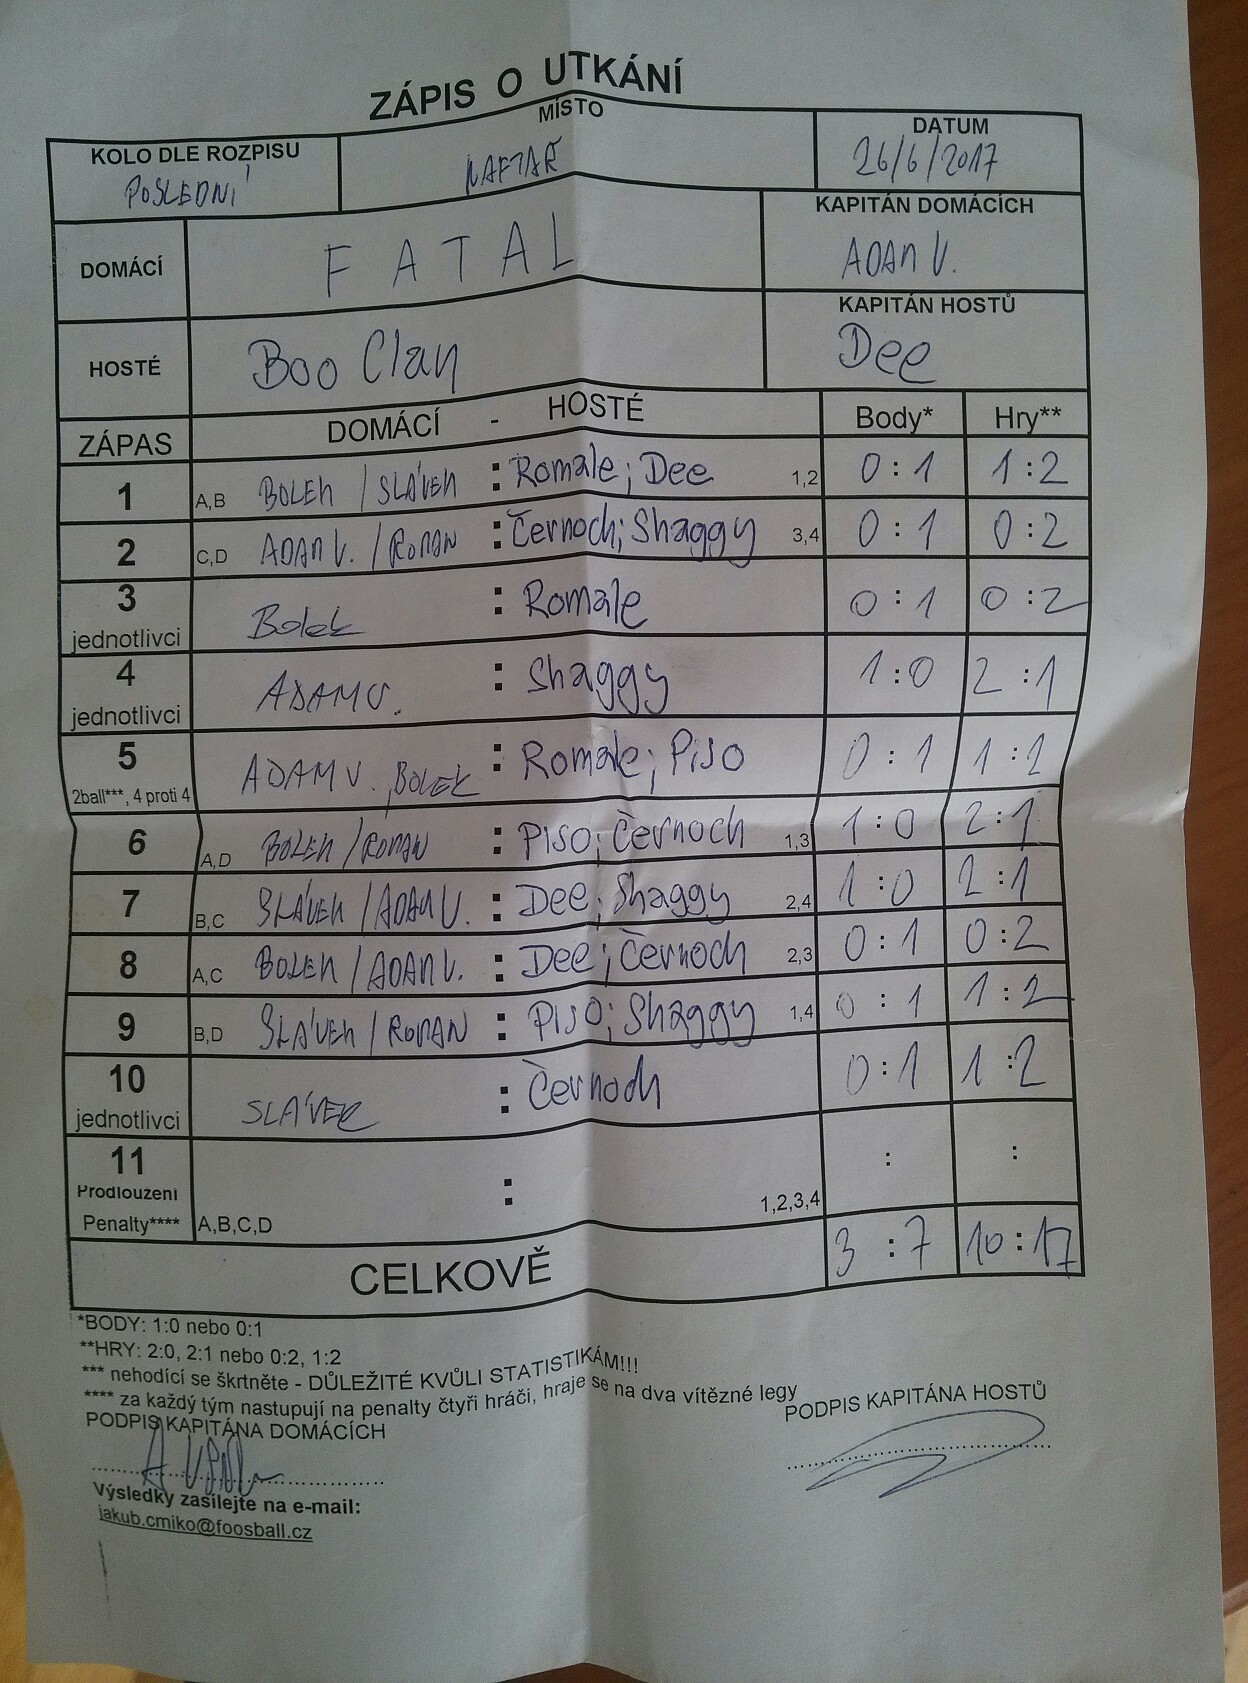 ZÁPIS O UTKÁNÍ
KOLO DLE ROZPISU MÍSTO DATUM
POSLEDNÍ NAFTAŘ 26/6/2017
DOMÁCÍ FATAL KAPITÁN DOMÁCÍCH
ADAM V.
HOSTÉ Boo Clan KAPITÁN HOSTŮ
Dee
ZÁPAS DOMÁCÍ - HOSTÉ Body* Hry**
1 A,B BOLEK / SLÁVEK : Romale; Dee 1,2 0:1 1:2
2 C,D ADAM V. / ROMAN : Černoch; Shaggy 3,4 0:1 0:2
3 jednotlivci Bolek : Romale 0:1 0:2
4 jednotlivci ADAM V. : Shaggy 1:0 2:1
5 ADAM V. , BOLEK : Romale; Piso 0:1 1:2
2ball***, 4 proti 4
6 A,D BOLEK / ROMAN : Piso; Černoch 1,3 1:0 2:1
7 B,C SLÁVEK / ADAM V. : Dee; Shaggy 2,4 1:0 2:1
8 A,C BOLEK / ADAM V. : Dee; Černoch 2,3 0:1 0:2
9 B,D SLÁVEK / ROMAN : Piso; Shaggy 1,4 0:1 1:2
10 jednotlivci SLÁVEK : Černoch 0:1 1:2
11 : : :
Prodloužení
Penalty**** A,B,C,D 1,2,3,4
CELKOVĚ 3:7 10:17
*BODY: 1:0 nebo 0:1
**HRY: 2:0, 2:1 nebo 0:2, 1:2
*** nehodící se škrtněte - DŮLEŽITÉ KVŮLI STATISTIKÁM!!!
**** za každý tým nastupují na penalty čtyři hráči, hraje se na dva vítězné legy
PODPIS KAPITÁNA DOMÁCÍCH PODPIS KAPITÁNA HOSTŮ
Výsledky zasílejte na e-mail:
jakub.cmiko@foosball.cz